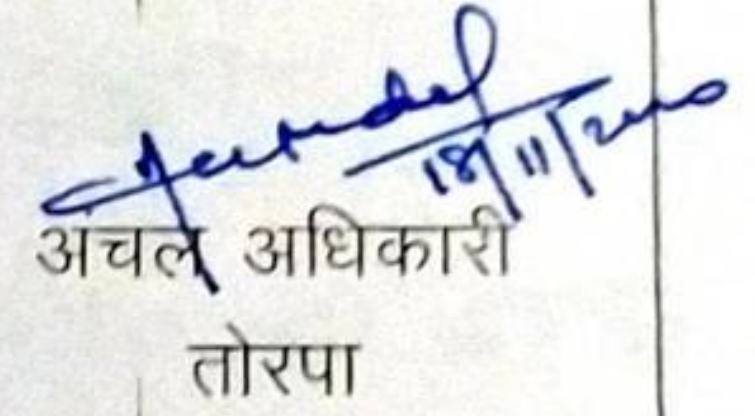 18/11/2020
अचल अधिकारी
तोरपा